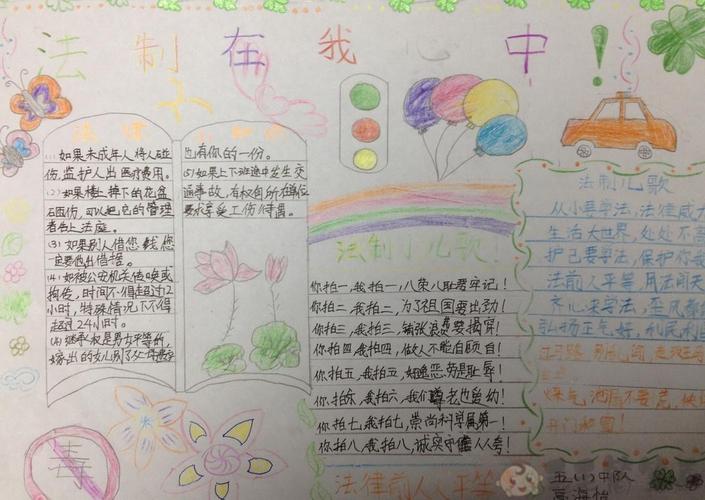 法制在我心中!
法律小知识
(1)如果未成年人将人碰
伤,监护人出医疗费用。
(2)如果楼上掉下的花盆
砸伤,可以把它的管理
者告上法庭。
(3)如果别人借您钱您
一定要他出借据。
(4)如被公安机关传唤或
拘传,时间不得超过12
小时,特殊情况下不得
超过24小时。
(4)继承权是男女平等的,
嫁出的女儿别了
也有你的一份。
(5)如果上下班途中发生交
通事故,有权向所在单位
要求享受工伤待遇。
法制小儿歌!
你拍一,我拍一,八荣八耻要牢记!
你拍二,我拍二,为了祖国要出劲!
你拍三,我拍三,铺张浪费要搞穿!
你拍四,我拍四,做人不能自顾自!
你拍五,我拍五,好逸恶劳是耻辱!
你拍六,我拍六,我们尊老也爱幼!
你拍七,我拍七,崇尚科学属第一!
你拍八,我拍八,诚实守信人人夸!
法制儿歌
从小要学法,法律威力
生活大世界,处处不离
护己要学法,保护你我
法前人平等,用法闯天
齐心来学法,歪风都
弘扬正气好,利民利
过马路,别乱闯,走
煤气,洒后不要
开门和窗!
毒
法律前人人平等
五(1)中队
高海怡